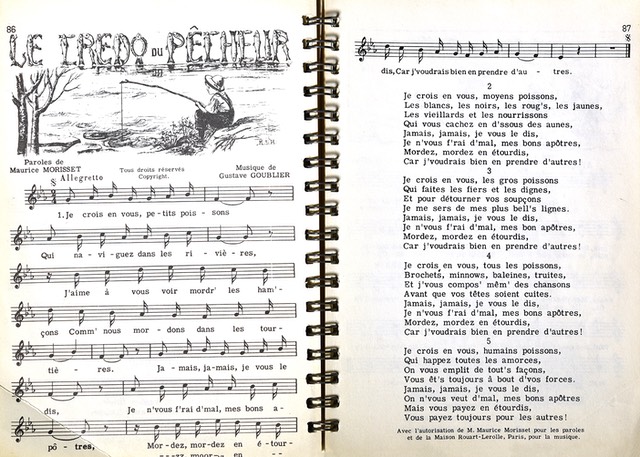 86
LE CREDO DU PÊCHEUR
Paroles de
Maurice MORISSET
Tous droits réservés
Copyright.
Musique de
Gustave GOUBLIER
Allegretto
1. Je crois en vous, pe-tits pois - sons
Qui na - vi - guez dans les ri - viè - res,
J'aime à vous voir mordr' les ham'-
çons Comm' nous mor - dons dans les tour-
tiè - res. Ja - mais, ja-mais, je vous le
dis, Je n'vous f'rai d'mal, mes bons a-
pô - tres, Mor - dez, mor-dez en é-tour-
87
dis, Car j'voudrais bien en prendre d'au - tres.
2
Je crois en vous, moyens poissons,
Les blancs, les noirs, les roug's, les jaunes,
Les vieillards et les nourrissons
Qui vous cachez en d'ssous des aunes,
Jamais, jamais, je vous le dis,
Je n'vous f'rai d'mal, mes bons apôtres,
Mordez, mordez en étourdis,
Car j'voudrais bien en prendre d'autres!
3
Je crois en vous, les gros poissons
Qui faites les fiers et les dignes,
Et pour détourner vos soupçons
Je me sers de mes plus bell's lignes.
Jamais, jamais, je vous le dis,
Je n'vous f'rai d'mal, mes bons apôtres,
Mordez, mordez en étourdis,
Car j'voudrais bien en prendre d'autres!
4
Je crois en vous, tous les poissons,
Brochets, minnows, baleines, truites,
Et j'vous compos' mêm' des chansons
Avant que vos têtes soient cuites.
Jamais, jamais, je vous le dis,
Je n'vous f'rai d'mal, mes bons apôtres,
Mordez, mordez en étourdis,
Car j'voudrais bien en prendre d'autres!
5
Je crois en vous, humains poissons,
Qui happez toutes les amorces,
On vous emplit de tout's façons,
Vous êt's toujours à bout d'vos forces.
Jamais, jamais, je vous le dis,
On n'vous veut d'mal, mes bons apôtres
Mais vous payez en étourdis,
Vous payez toujours pour les autres!
Avec l'autorisation de M. Maurice Morisset pour les paroles
et de la Maison Rouart-Lerolle, Paris, pour la musique.